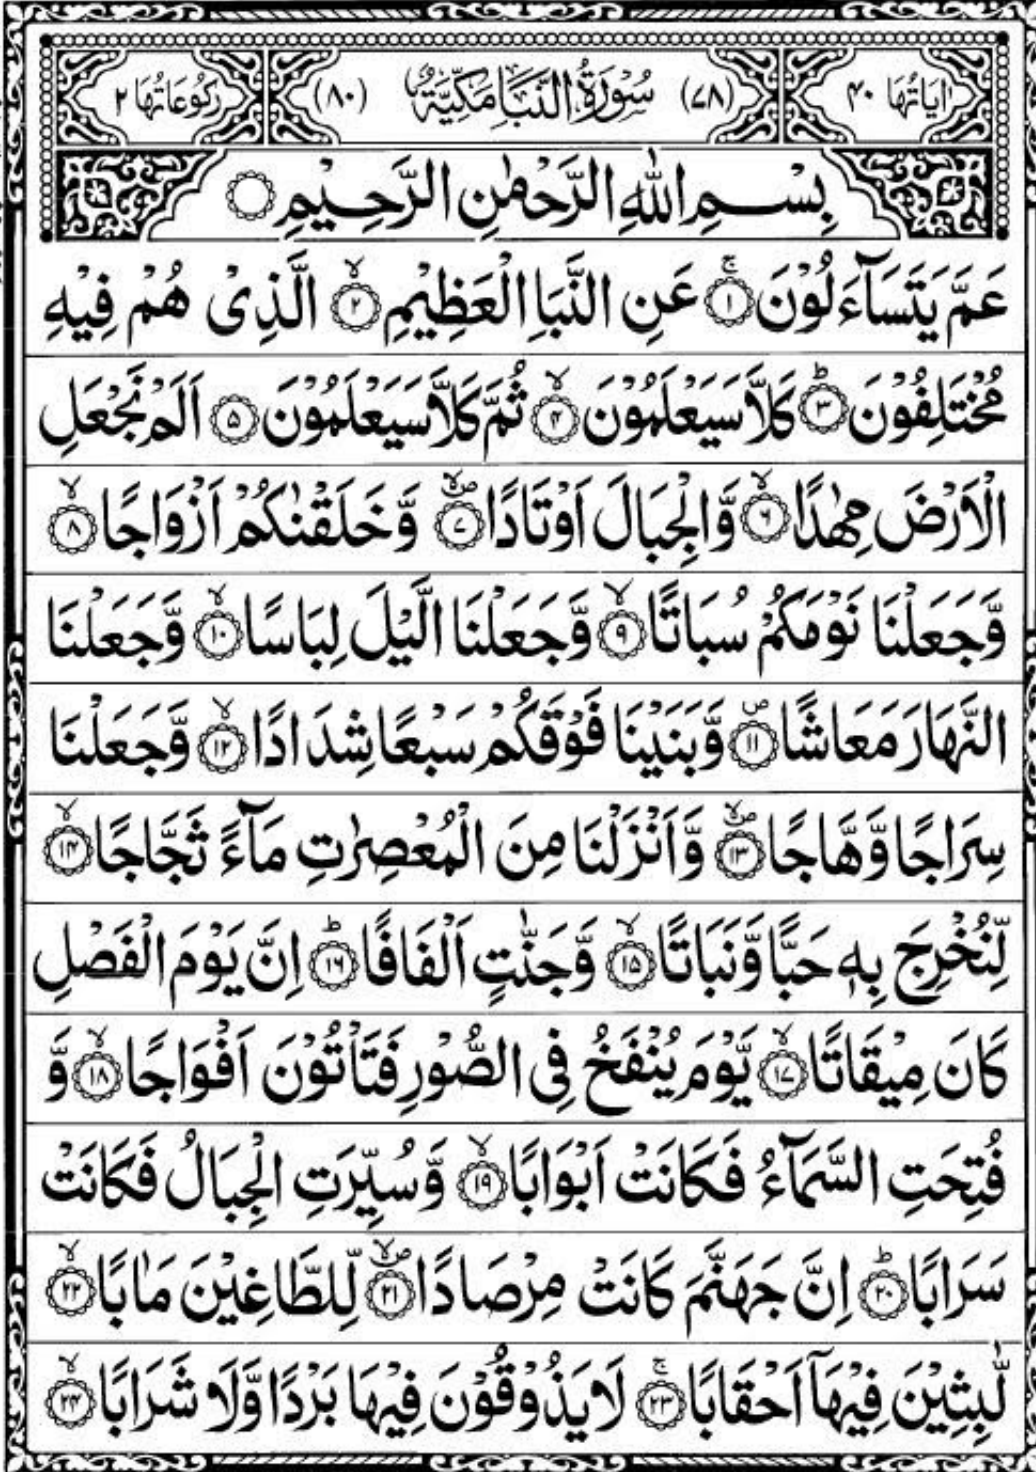 اٰيَاتُهَا ۴۰ (۷۸) سُوْرَةُ النَّبَاِ مَكِّيَّةٌ (۸۰) رُكُوْعَاتُهَا ۲
بِسْمِ اللّٰهِ الرَّحْمٰنِ الرَّحِيْمِ ○
عَمَّ يَتَسَآءَلُوْنَ ۚ﴿۱﴾ عَنِ النَّبَاِ الْعَظِيْمِ ۙ﴿۲﴾ الَّذِىْ هُمْ فِيْهِ
مُخْتَلِفُوْنَ ؕ﴿۳﴾ كَلَّا سَيَعْلَمُوْنَ ۙ﴿۴﴾ ثُمَّ كَلَّا سَيَعْلَمُوْنَ ﴿۵﴾ اَلَمْ نَجْعَلِ
الْاَرْضَ مِهٰدًا ۙ﴿۶﴾ وَّالْجِبَالَ اَوْتَادًا ۪ۙ﴿۷﴾ وَّخَلَقْنٰكُمْ اَزْوَاجًا ۙ﴿۸﴾
وَّجَعَلْنَا نَوْمَكُمْ سُبَاتًا ۙ﴿۹﴾ وَّجَعَلْنَا الَّيْلَ لِبَاسًا ۙ﴿۱۰﴾ وَّجَعَلْنَا
النَّهَارَ مَعَاشًا ۪﴿۱۱﴾ وَّبَنَيْنَا فَوْقَكُمْ سَبْعًا شِدَادًا ۙ﴿۱۲﴾ وَّجَعَلْنَا
سِرَاجًا وَّهَّاجًا ۪ۙ﴿۱۳﴾ وَّاَنْزَلْنَا مِنَ الْمُعْصِرٰتِ مَآءً ثَجَّاجًا ۙ﴿۱۴﴾
لِّنُخْرِجَ بِهٖ حَبًّا وَّنَبَاتًا ۙ﴿۱۵﴾ وَّجَنّٰتٍ اَلْفَافًا ؕ﴿۱۶﴾ اِنَّ يَوْمَ الْفَصْلِ
كَانَ مِيْقَاتًا ۙ﴿۱۷﴾ يَّوْمَ يُنْفَخُ فِى الصُّوْرِ فَتَاْتُوْنَ اَفْوَاجًا ۙ﴿۱۸﴾ وَّ
فُتِحَتِ السَّمَآءُ فَكَانَتْ اَبْوَابًا ۙ﴿۱۹﴾ وَّسُيِّرَتِ الْجِبَالُ فَكَانَتْ
سَرَابًا ؕ﴿۲۰﴾ اِنَّ جَهَنَّمَ كَانَتْ مِرْصَادًا ۪ۙ﴿۲۱﴾ لِّلطَّاغِيْنَ مَاٰبًا ۙ﴿۲۲﴾
لّٰبِثِيْنَ فِيْهَآ اَحْقَابًا ۚ﴿۲۳﴾ لَا يَذُوْقُوْنَ فِيْهَا بَرْدًا وَّلَا شَرَابًا ۙ﴿۲۴﴾